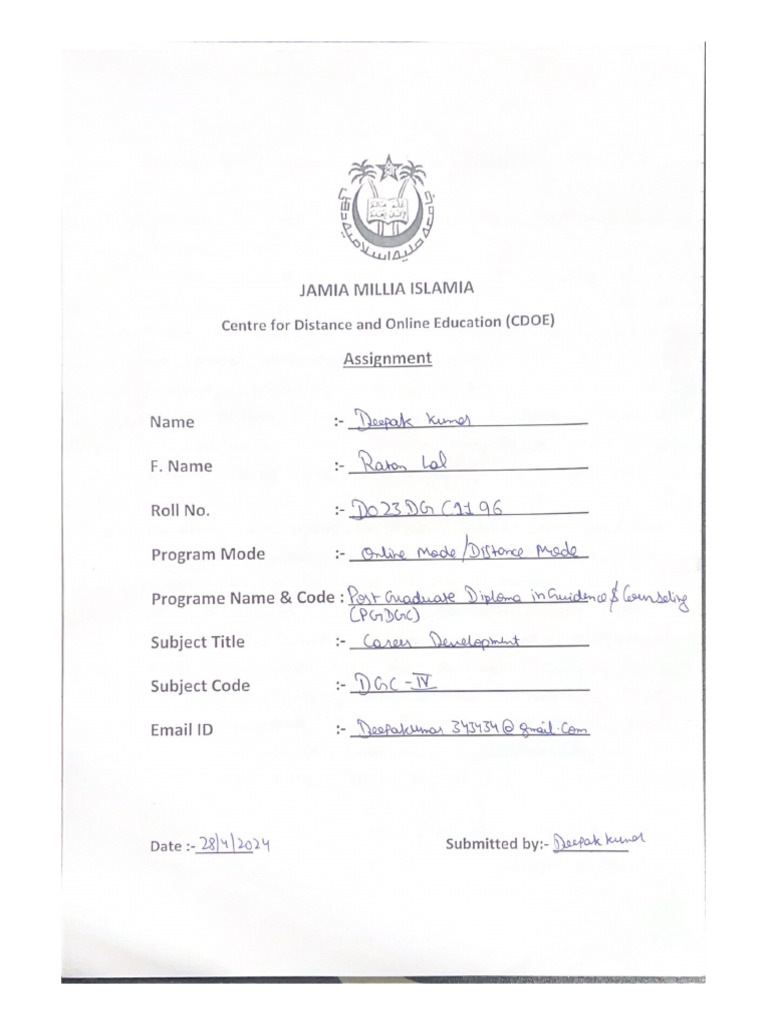 جامعہ ملیہ اسلامیہ دہلی
JAMIA MILLIA ISLAMIA
Centre for Distance and Online Education (CDOE)
Assignment
Name :- Deepak Kumar
F. Name :- Ratan Lal
Roll No. :- DO23DGC1196
Program Mode :- Online Mode/Distance Mode
Programe Name & Code : Post Graduate Diploma in Guidence & Counseling
(PGDGC)
Subject Title :- Career Development
Subject Code :- DGC-IV
Email ID :- Deepakumar343434@gmail.com
Date :- 28/4/2024 Submitted by:- Deepak kumar